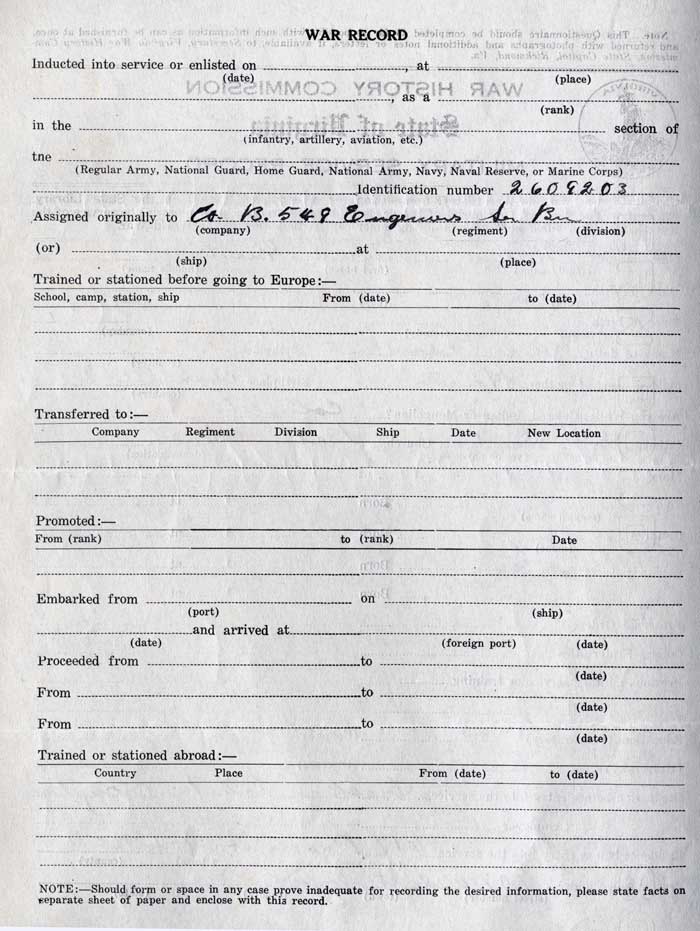 WAR RECORD
Inducted into service or enlisted on , at
(date) (place)
, as a
(rank)
in the section of
(infantry, artillery, aviation, etc.)
tne
(Regular Army, National Guard, Home Guard, National Army, Navy, Naval Reserve, or Marine Corps)
Identification number 2609203
Assigned originally to Co B. 549 Engineers Ser Bn
(company) (regiment) (division)
(or) at
(ship) (place)
Trained or stationed before going to Europe:—
School, camp, station, ship From (date) to (date)
Transferred to:—
Company Regiment Division Ship Date New Location
Promoted:—
From (rank) to (rank) Date
Embarked from on
(port) (ship)
and arrived at
(date) (foreign port) (date)
Proceeded from to
(date)
From to
(date)
From to
(date)
Trained or stationed abroad:—
Country Place From (date) to (date)
NOTE:—Should form or space in any case prove inadequate for recording the desired information, please state facts on
separate sheet of paper and enclose with this record.